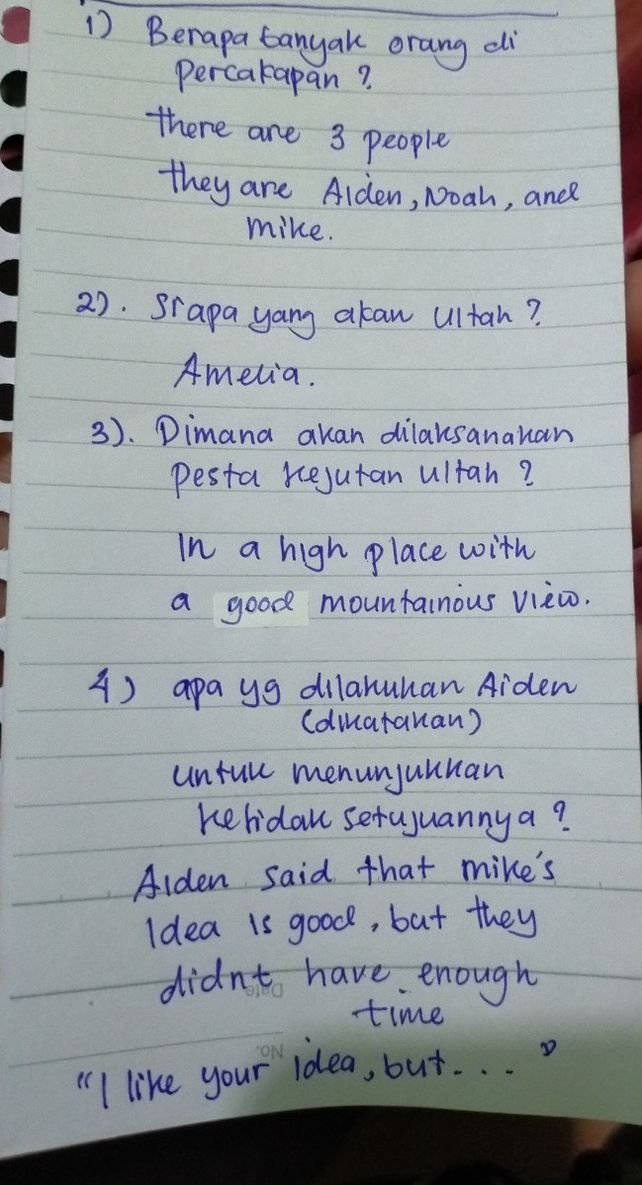 1) Berapa banyak orang di
percakapan ?
there are 3 people
they are Aiden, Noah, and
mike.
2). Siapa yang akan ultah ?
Amelia.
3). Dimana akan dilaksanakan
pesta kejutan ultah ?
In a high place with
a good mountainous view.
4) apa yg dilakukan Aiden
(dikatakan)
untuk menunjukkan
ketidak setujuannya ?
Aiden said that mike's
Idea is good, but they
didnt have enough
Date
time
No.
"I like your idea, but. . . "